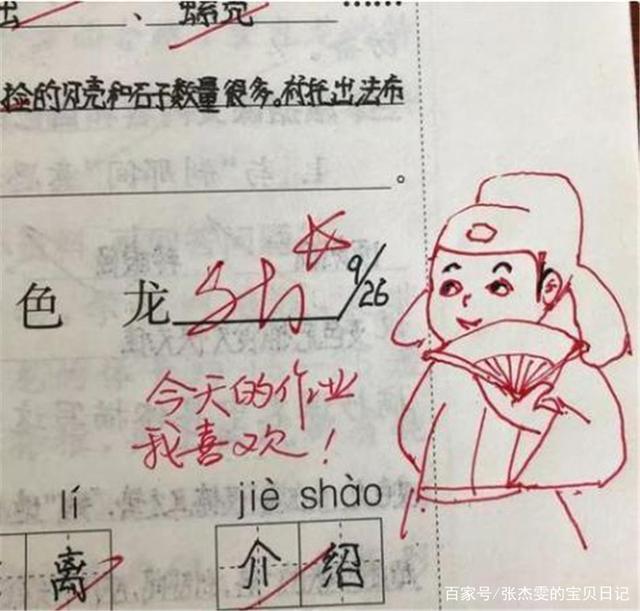 、 螺壳 ……
捡的贝壳和石子数量很多。衬托出法布
。
色 龙 9/26
今天的作业
我喜欢！
lí jiè shào
离 介绍
百家号/张杰雯的宝贝日记